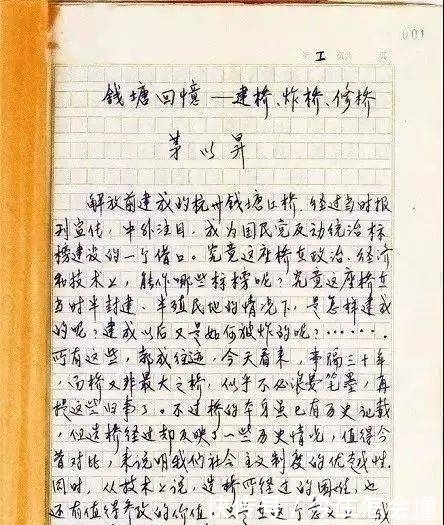 001
第 I 页
钱塘回憶——建桥、炸桥、修桥
茅以昇
解放前建成的杭州钱塘江桥,经过当时报
刊宣传,中外注目,成为国民党反动统治标
榜建设的一个借口。究竟这座桥在政治、经济
和技术上,能作哪些标榜呢?究竟这座桥在
当时半封建、半殖民地的情况下,是怎样建成
的呢?建成以后又是如何被炸的呢?……
所有这些,都成往迹,今天看来,事隔三十年,
而桥又非最大之桥,似乎不必浪费笔墨,再
提这些旧事了。不过桥的本身虽已有历史记载,
但造桥经过却反映了一些历史情况,值得今
昔对比,来说明我们社会主义制度的优越性。
同时,从技术上说,造桥所经过的困难,也
还有值得参考的价值。